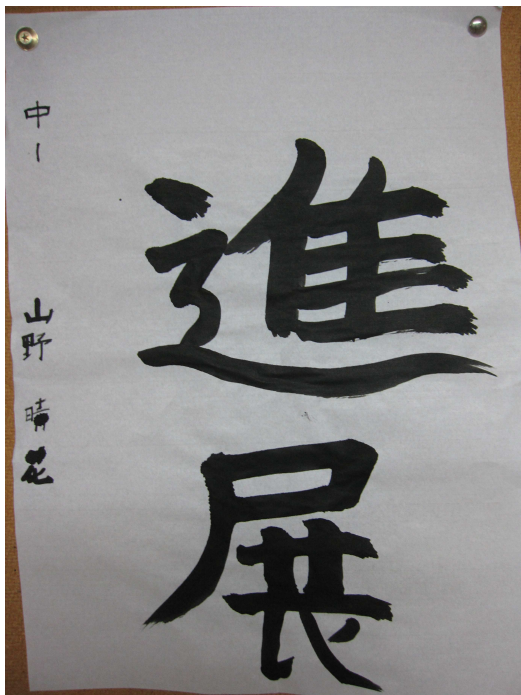 進展
中一
山野 晴花